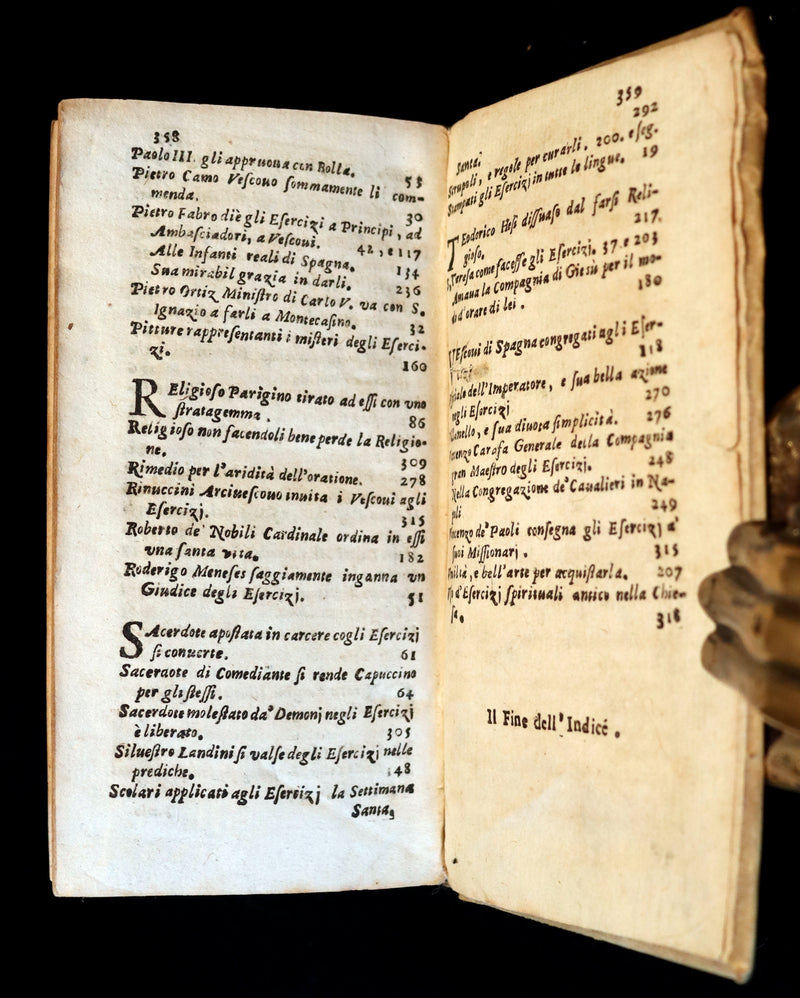 358
Paolo III. gli appruoua con Bolla. 55
Pietro Camo Veſcouo ſommamente li com-
menda. 30
Pietro Fabro diè gli Eſercizj a Principi, ad
Ambaſciadori, a Veſcoui. 42, e 117
Alle Infanti reali di Spagna. 134
Sua mirabil grazia in darli. 236
Pietro Ortiz Miniſtro di Carlo V. va con S.
Ignazio a farli a Montecaſino. 32
Pitture rappreſentanti i miſteri degli Eſerci-
zj. 160
REligioſo Parigino tirato ad eſſi con vno
ſtratagemma. 86
Religioſo non facendoli bene perde la Religio-
ne. 309
Rimedio per l'aridità dell'oratione. 278
Rinuccini Arciueſcouo inuita i Veſcoui agli
Eſercizj. 315
Roberto de' Nobili Cardinale ordina in eſſi
vna ſanta vita. 182
Roderigo Meneſes ſaggiamente inganna vn
Giudice degli Eſercizj. 51
SAcerdote apoſtata in carcere cogli Eſercizj
ſi conuerte. 61
Sacerdote di Comediante ſi rende Capuccino
per gli ſteſſi. 64
Sacerdote moleſtato da' Demonj negli Eſercizj
è liberato. 305
Silueſtro Landini ſi valſe degli Eſercizj nelle
prediche. 48
Scolari applicati agli Eſercizj la Settimana
Santa,
359
Santa. 292
Scrupoli, e regole per curarli. 200. e ſeg.
Stampati gli Eſercizj in tutte le lingue. 19
TEoderico Heſi diſſuaſo dal farſi Reli-
gioſo. 217.
S. Tereſa come faceſſe gli Eſercizj. 37. e 203
Amaua la Compagnia di Gieſù per il mo-
do d'orare di lei. 180
VEſcoui di Spagna congregati agli Eſer-
cizj. 118
dell'Imperatore, e ſua bella azione
negli Eſercizj 270
e ſua diuota ſimplicità. 276
Carafa Generale della Compagnia
gran Maeſtro degli Eſercizj. 248
Nella Congregazione de' Caualieri in Na-
pli 249
de' Paoli conſegna gli Eſercizj a'
ſuoi Miſſionarj. 315
e bell'arte per acquiſtarla. 207
d'Eſercizj ſpirituali antico nella Chie-
ſa. 318
Il Fine dell'Indice.